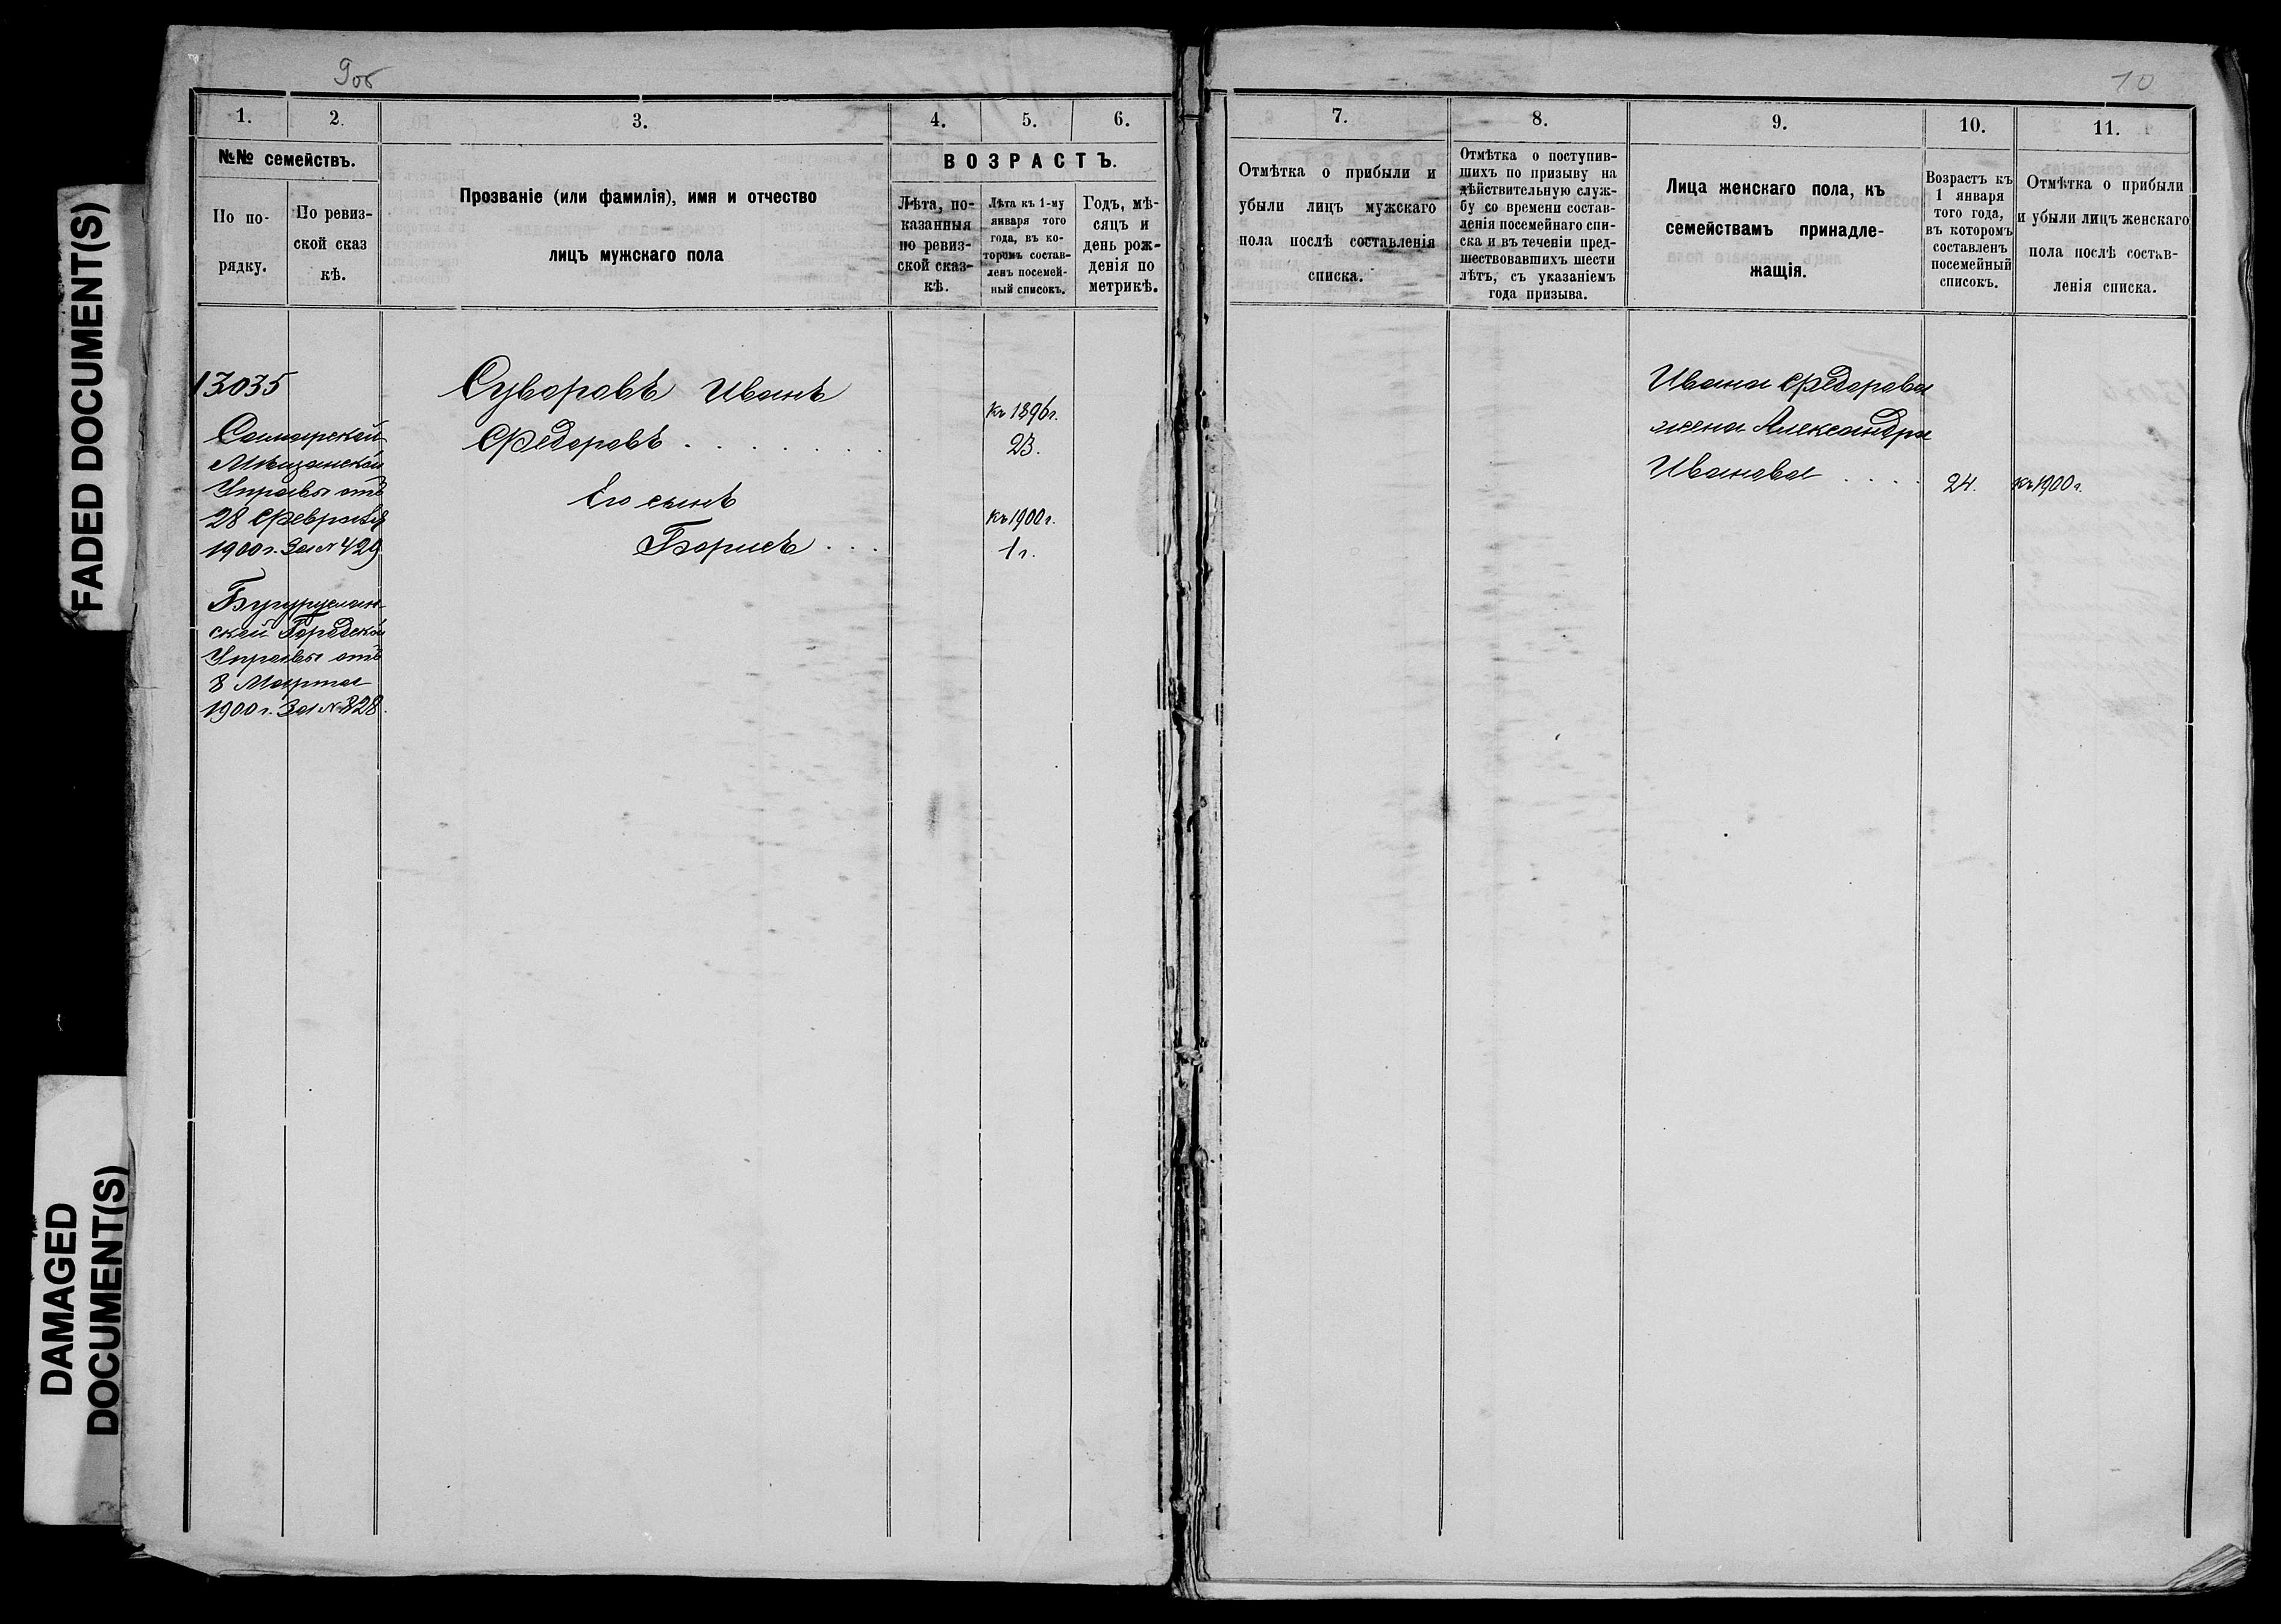 FADED DOCUMENT(S)
DAMAGED
DOCUMENT(S)
9об
1.
2.
3.
4.
5.
6.
№№ семействъ.
По по-
рядку.
По ревиз-
ской сказ
кѣ.
Прозваніе (или фамилія), имя и отчество
лицъ мужскаго пола
ВОЗРАСТЪ.
Лѣта, по-
казанныя
по ревиз-
ской сказ-
кѣ.
Лѣта къ 1-му
января того
года, въ ко-
торомъ состав-
ленъ посемей-
ный списокъ.
Годъ, мѣ-
сяцъ и
день рож-
денія по
метрикѣ.
13035
Самарской
Мѣщанской
Управы отъ
28 Февраля
1900г. За № 429
Бугуруслан-
ской Городской
Управы отъ
8 Марта
1900г. За № 828.
Суворовъ Иванъ
Федоровъ . . . . . . .
Его сынъ
Борисъ . . .
къ 1896г.
23.
къ 1900г.
1г.
10
7.
8.
9.
10.
11.
Отмѣтка о прибыли и
убыли лицъ мужскаго
пола послѣ составленія
списка.
Отмѣтка о поступив-
шихъ по призыву на
дѣйствительную служ-
бу со времени состав-
ленія посемейнаго спи-
ска и въ теченіи пред-
шествовавшихъ шести
лѣтъ, съ указаніемъ
года призыва.
Лица женскаго пола, къ
семействамъ принадле-
жащія.
Возрастъ къ
1 января
того года,
въ которомъ
составленъ
посемейный
списокъ.
Отмѣтка о прибыли
и убыли лицъ женскаго
пола послѣ состав-
ленія списка.
Ивана Федорова
жена Александра
Иванова . . . .
24.
къ 1900г.